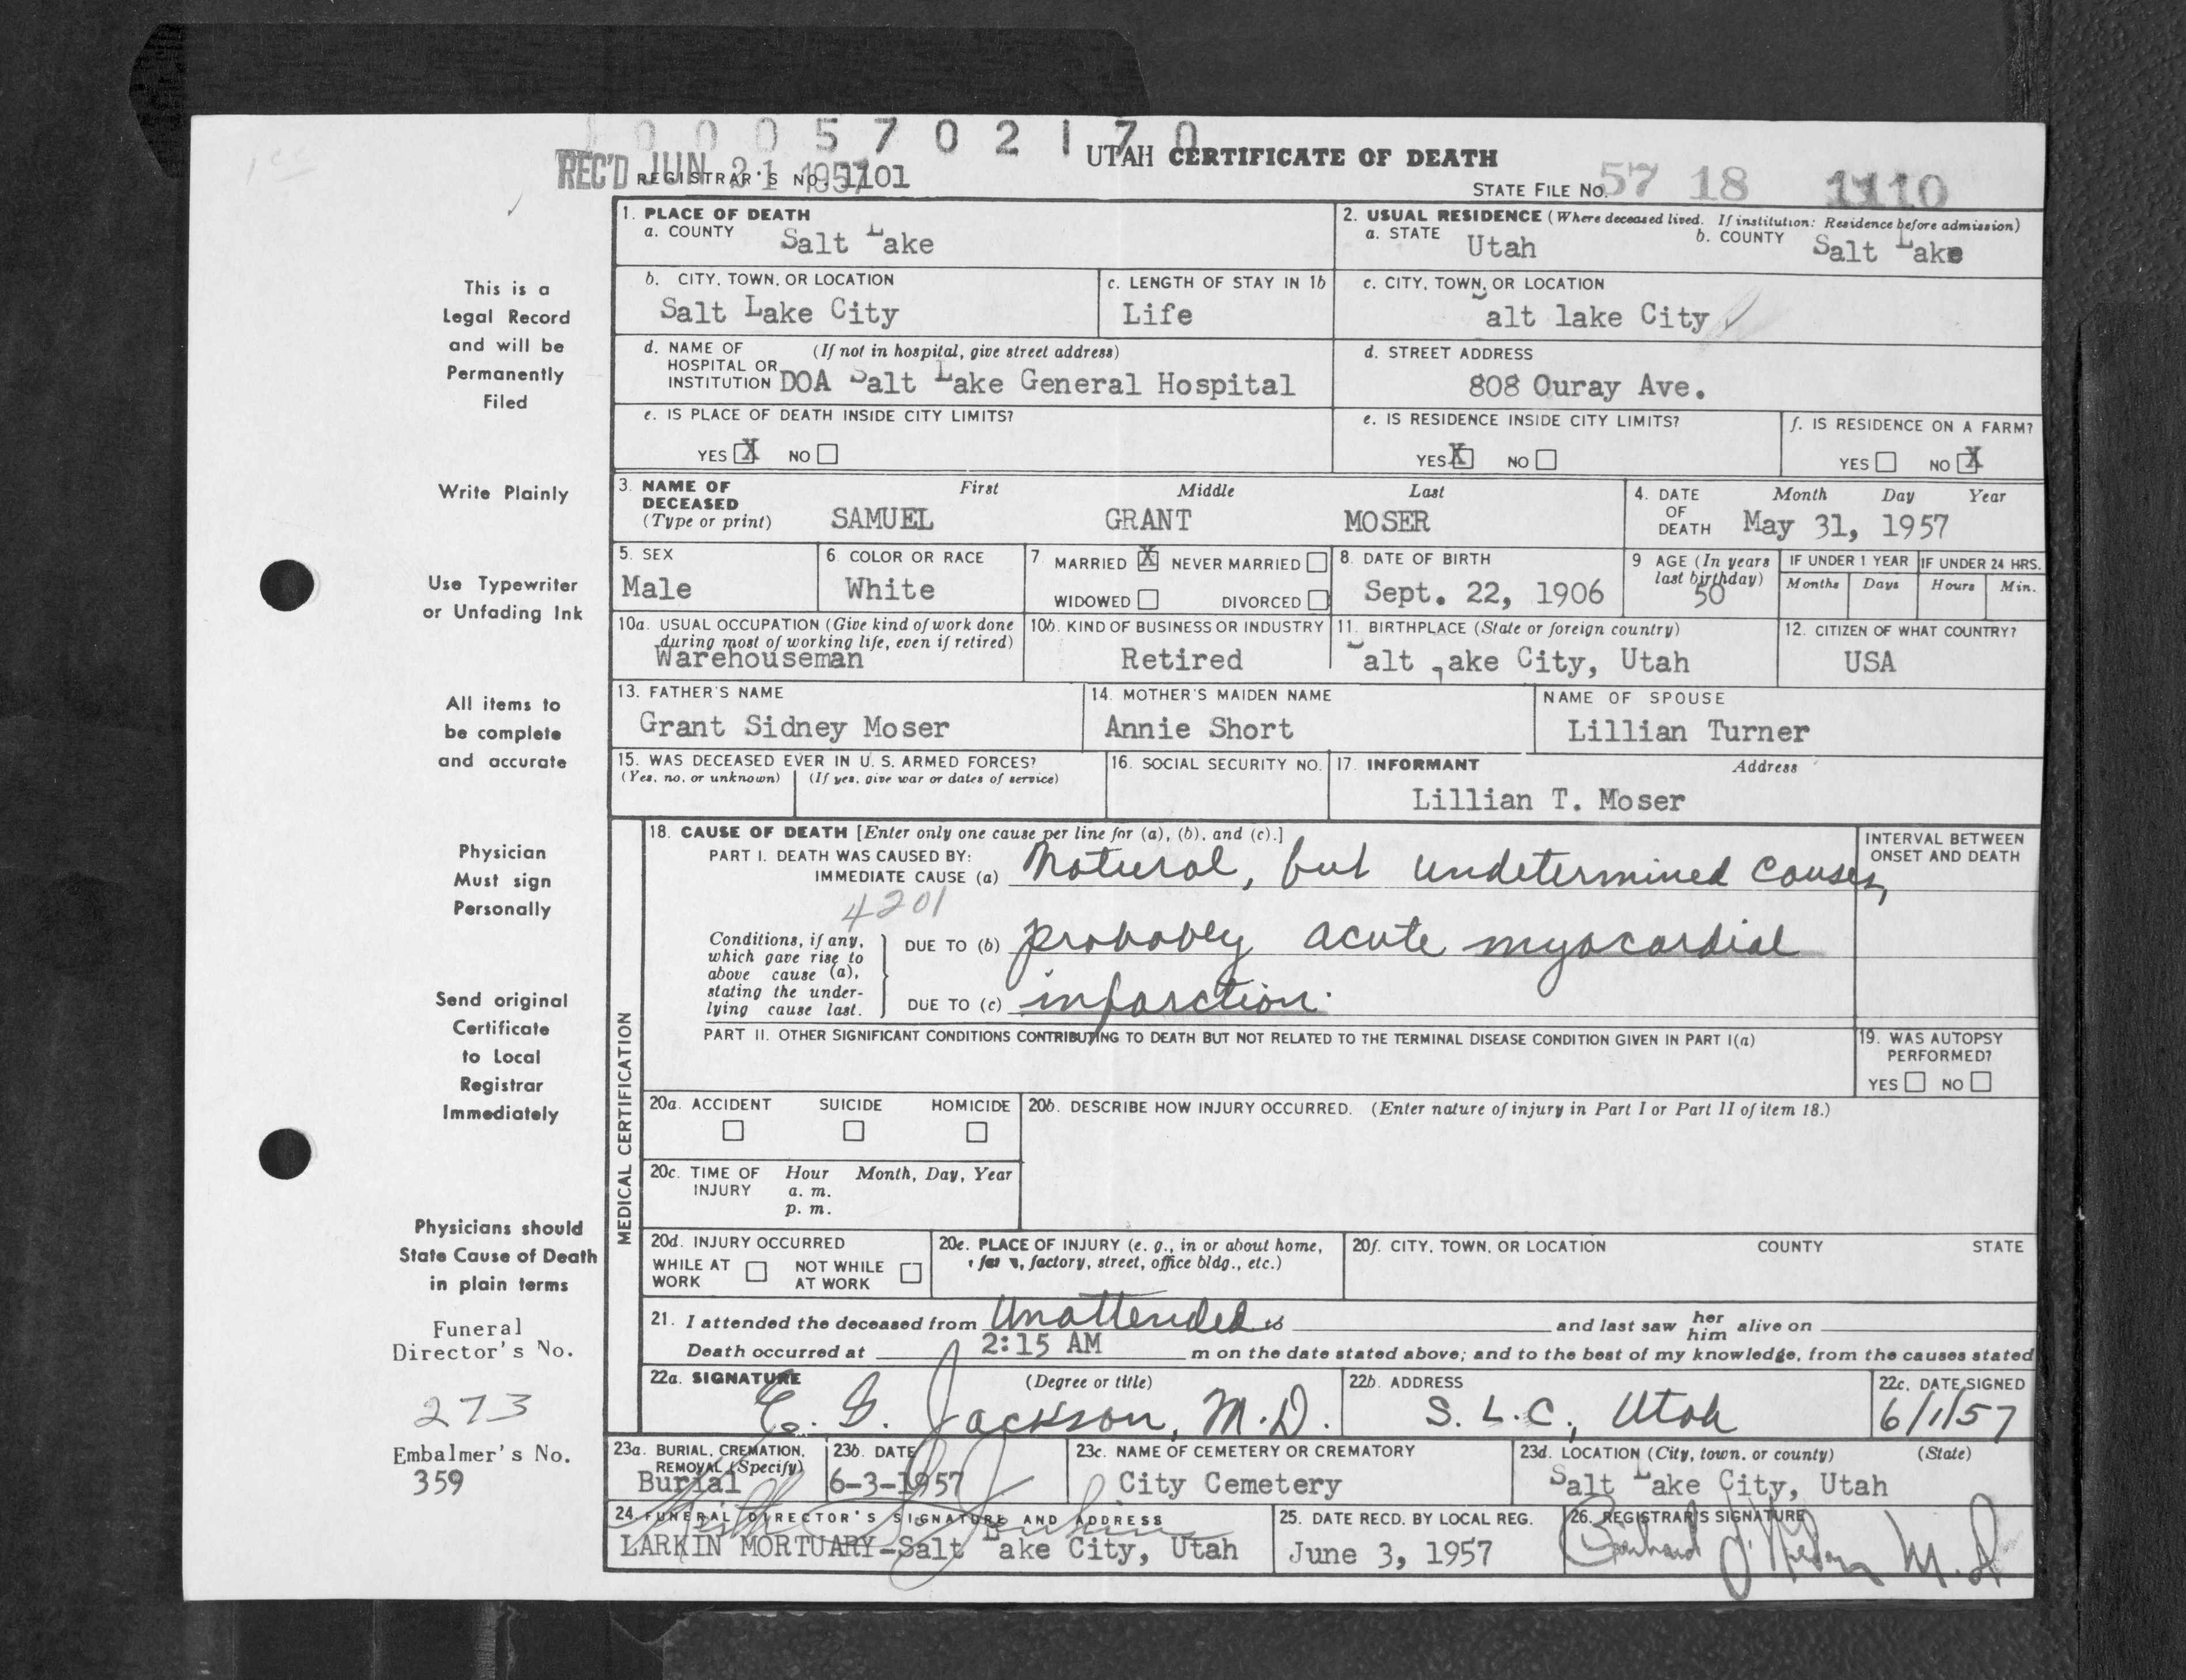 1000570217 0
UTAH CERTIFICATE OF DEATH
REC'D JUN 21 1957
REGISTRAR'S NO. 1101
STATE FILE NO. 57 18 1110
This is a
Legal Record
and will be
Permanently
Filed
Write Plainly
Use Typewriter
or Unfading Ink
All items to
be complete
and accurate
Physician
Must sign
Personally
Send original
Certificate
to Local
Registrar
Immediately
Physicians should
State Cause of Death
in plain terms
Funeral
Director's No.
273
Embalmer's No.
359
1. PLACE OF DEATH
a. COUNTY Salt Lake
2. USUAL RESIDENCE (Where deceased lived. If institution: Residence before admission)
a. STATE Utah b. COUNTY Salt Lake
b. CITY, TOWN, OR LOCATION
Salt Lake City
c. LENGTH OF STAY IN 1b
Life
c. CITY, TOWN, OR LOCATION
Salt lake City
d. NAME OF (If not in hospital, give street address)
HOSPITAL OR
INSTITUTION DOA Salt Lake General Hospital
d. STREET ADDRESS
808 Ouray Ave.
e. IS PLACE OF DEATH INSIDE CITY LIMITS?
YES X NO
e. IS RESIDENCE INSIDE CITY LIMITS?
YES X NO
f. IS RESIDENCE ON A FARM?
YES NO X
3. NAME OF DECEASED (Type or print) First Middle Last
SAMUEL GRANT MOSER
4. DATE OF DEATH Month Day Year
May 31, 1957
5. SEX
Male
6 COLOR OR RACE
White
7 MARRIED X NEVER MARRIED
WIDOWED DIVORCED
8. DATE OF BIRTH
Sept. 22, 1906
9 AGE (In years last birthday)
50
IF UNDER 1 YEAR
Months Days
IF UNDER 24 HRS.
Hours Min.
10a. USUAL OCCUPATION (Give kind of work done
during most of working life, even if retired)
Warehouseman
10b. KIND OF BUSINESS OR INDUSTRY
Retired
11. BIRTHPLACE (State or foreign country)
Salt Lake City, Utah
12. CITIZEN OF WHAT COUNTRY?
USA
13. FATHER'S NAME
Grant Sidney Moser
14. MOTHER'S MAIDEN NAME
Annie Short
NAME OF SPOUSE
Lillian Turner
15. WAS DECEASED EVER IN U. S. ARMED FORCES?
(Yes, no, or unknown) (If yes, give war or dates of service)
16. SOCIAL SECURITY NO.
17. INFORMANT Address
Lillian T. Moser
MEDICAL CERTIFICATION
18. CAUSE OF DEATH [Enter only one cause per line for (a), (b), and (c).]
PART I. DEATH WAS CAUSED BY:
IMMEDIATE CAUSE (a) Natural, but undetermined causes,
4201
INTERVAL BETWEEN
ONSET AND DEATH
Conditions, if any,
which gave rise to
above cause (a),
stating the under-
lying cause last.
DUE TO (b) probably acute myocardial
DUE TO (c) infarction.
PART II. OTHER SIGNIFICANT CONDITIONS CONTRIBUTING TO DEATH BUT NOT RELATED TO THE TERMINAL DISEASE CONDITION GIVEN IN PART I(a)
19. WAS AUTOPSY
PERFORMED?
YES NO
20a. ACCIDENT SUICIDE HOMICIDE
20b. DESCRIBE HOW INJURY OCCURRED. (Enter nature of injury in Part I or Part II of item 18.)
20c. TIME OF INJURY Hour Month, Day, Year
a. m.
p. m.
20d. INJURY OCCURRED
WHILE AT WORK NOT WHILE AT WORK
20e. PLACE OF INJURY (e. g., in or about home,
farm, factory, street, office bldg., etc.)
20f. CITY, TOWN, OR LOCATION COUNTY STATE
21. I attended the deceased from Unattended to and last saw her him alive on
Death occurred at 2:15 AM m on the date stated above; and to the best of my knowledge, from the causes stated
22a. SIGNATURE (Degree or title)
E. G. Jackson, M.D.
22b. ADDRESS
S.L.C., Utah
22c. DATE SIGNED
6/1/57
23a. BURIAL, CREMATION,
REMOVAL (Specify)
Burial
23b. DATE
6-3-1957
23c. NAME OF CEMETERY OR CREMATORY
City Cemetery
23d. LOCATION (City, town, or county) (State)
Salt Lake City, Utah
24. FUNERAL DIRECTOR'S SIGNATURE AND ADDRESS
LARKIN MORTUARY-Salt Lake City, Utah
25. DATE RECD. BY LOCAL REG.
June 3, 1957
26. REGISTRAR'S SIGNATURE
M.D